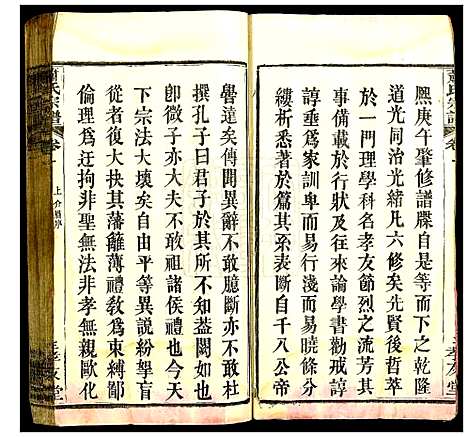 熙庚午肇修譜牒自是等而下之乾隆
道光同治光緒凡六修矣先賢後哲萃
於一門理學科名孝友節烈之流芳其
事備載於行狀及往來論學書勸戒諄
諄垂爲家訓卑而易曉條分
縷析悉著於篇其系表斷自千八公帝
嚳遠矣傳聞異辭不敢臆斷亦不敢杜
撰孔子曰君子於其所不知蓋闕如也
卽微子亦大夫不敢祖諸侯禮也今天
下宗法大壞矣自由平等異說紛拏盲
從者復大抉其藩籬薄禮敎為束縛鄙
倫理爲迂拘非聖無法非孝無親歐化
氏宗譜
卷一
上
孝友堂